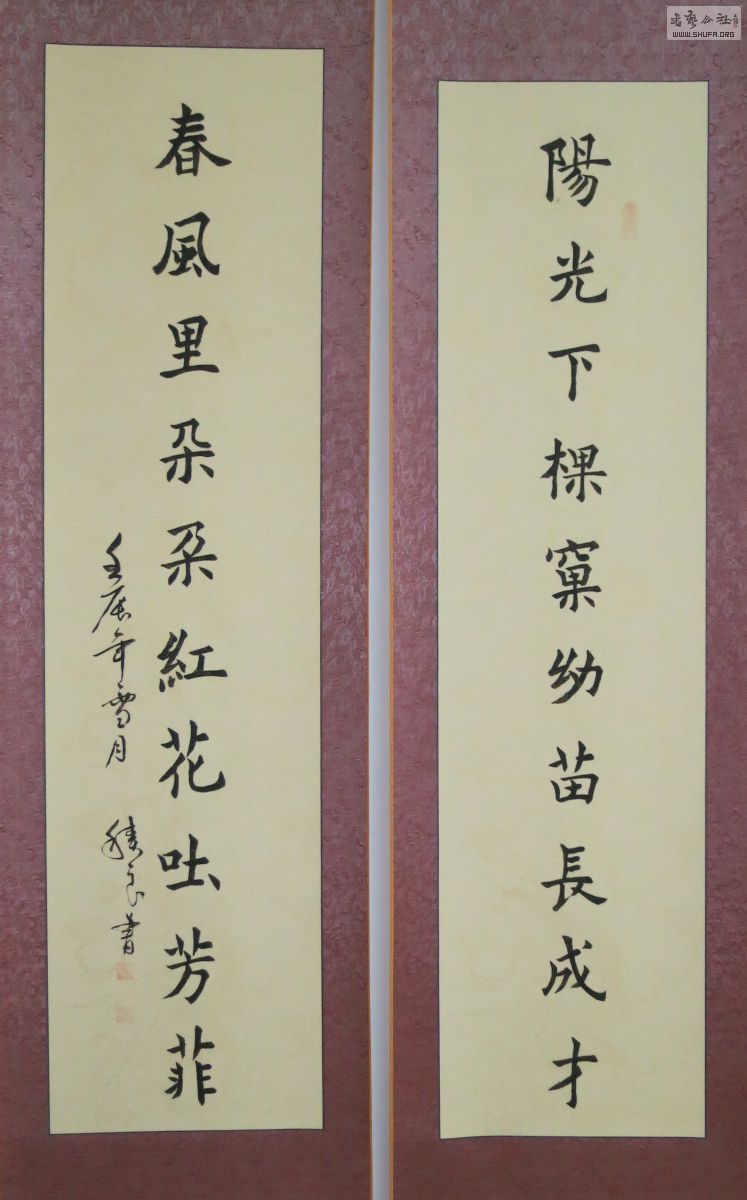 陽光下棵窠幼苗長成才
春風里朵朶紅花吐芳菲
壬辰年雪月
良書
書藝公社
WWW.SHUFA.ORG